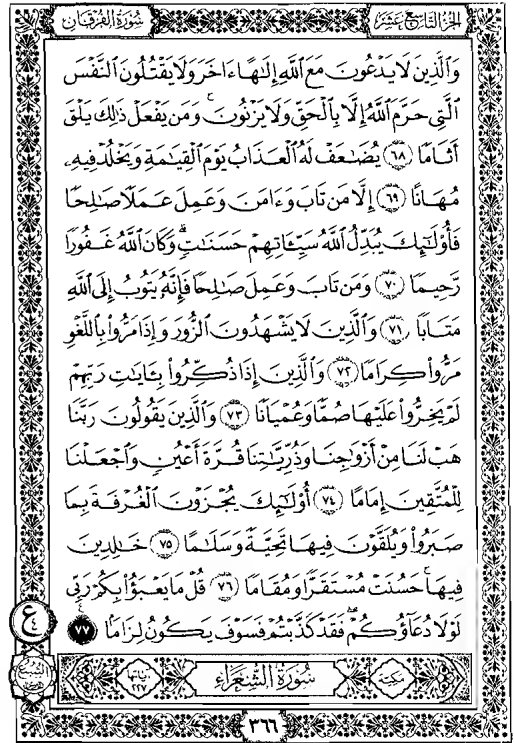 الجزء التاسع عشر
سورة الفرقان
وَٱلَّذِينَ لَا يَدْعُونَ مَعَ ٱللَّهِ إِلَٰهًا ءَاخَرَ وَلَا يَقْتُلُونَ ٱلنَّفْسَ
ٱلَّتِي حَرَّمَ ٱللَّهُ إِلَّا بِٱلْحَقِّ وَلَا يَزْنُونَ ۚ وَمَن يَفْعَلْ ذَٰلِكَ يَلْقَ
أَثَامًا ﴿٦٨﴾ يُضَٰعَفْ لَهُ ٱلْعَذَابُ يَوْمَ ٱلْقِيَٰمَةِ وَيَخْلُدْ فِيهِۦ
مُهَانًا ﴿٦٩﴾ إِلَّا مَن تَابَ وَءَامَنَ وَعَمِلَ عَمَلًا صَٰلِحًا
فَأُو۟لَٰٓئِكَ يُبَدِّلُ ٱللَّهُ سَيِّـَٔاتِهِمْ حَسَنَٰتٍ ۗ وَكَانَ ٱللَّهُ غَفُورًا
رَّحِيمًا ﴿٧٠﴾ وَمَن تَابَ وَعَمِلَ صَٰلِحًا فَإِنَّهُۥ يَتُوبُ إِلَى ٱللَّهِ
مَتَابًا ﴿٧١﴾ وَٱلَّذِينَ لَا يَشْهَدُونَ ٱلزُّورَ وَإِذَا مَرُّوا۟ بِٱللَّغْوِ
مَرُّوا۟ كِرَامًا ﴿٧٢﴾ وَٱلَّذِينَ إِذَا ذُكِّرُوا۟ بِـَٔايَٰتِ رَبِّهِمْ
لَمْ يَخِرُّوا۟ عَلَيْهَا صُمًّا وَعُمْيَانًا ﴿٧٣﴾ وَٱلَّذِينَ يَقُولُونَ رَبَّنَا
هَبْ لَنَا مِنْ أَزْوَٰجِنَا وَذُرِّيَّٰتِنَا قُرَّةَ أَعْيُنٍ وَٱجْعَلْنَا
لِلْمُتَّقِينَ إِمَامًا ﴿٧٤﴾ أُو۟لَٰٓئِكَ يُجْزَوْنَ ٱلْغُرْفَةَ بِمَا
صَبَرُوا۟ وَيُلَقَّوْنَ فِيهَا تَحِيَّةً وَسَلَٰمًا ﴿٧٥﴾ خَٰلِدِينَ
فِيهَا ۚ حَسُنَتْ مُسْتَقَرًّا وَمُقَامًا ﴿٧٦﴾ قُلْ مَا يَعْبَؤُا۟ بِكُمْ رَبِّي
لَوْلَا دُعَآؤُكُمْ ۖ فَقَدْ كَذَّبْتُمْ فَسَوْفَ يَكُونُ لِزَامًۢا ﴿٧٧﴾
ع ٤
مكية
سورة الشعراء
آياتها ٢٢٧
٣٦٦